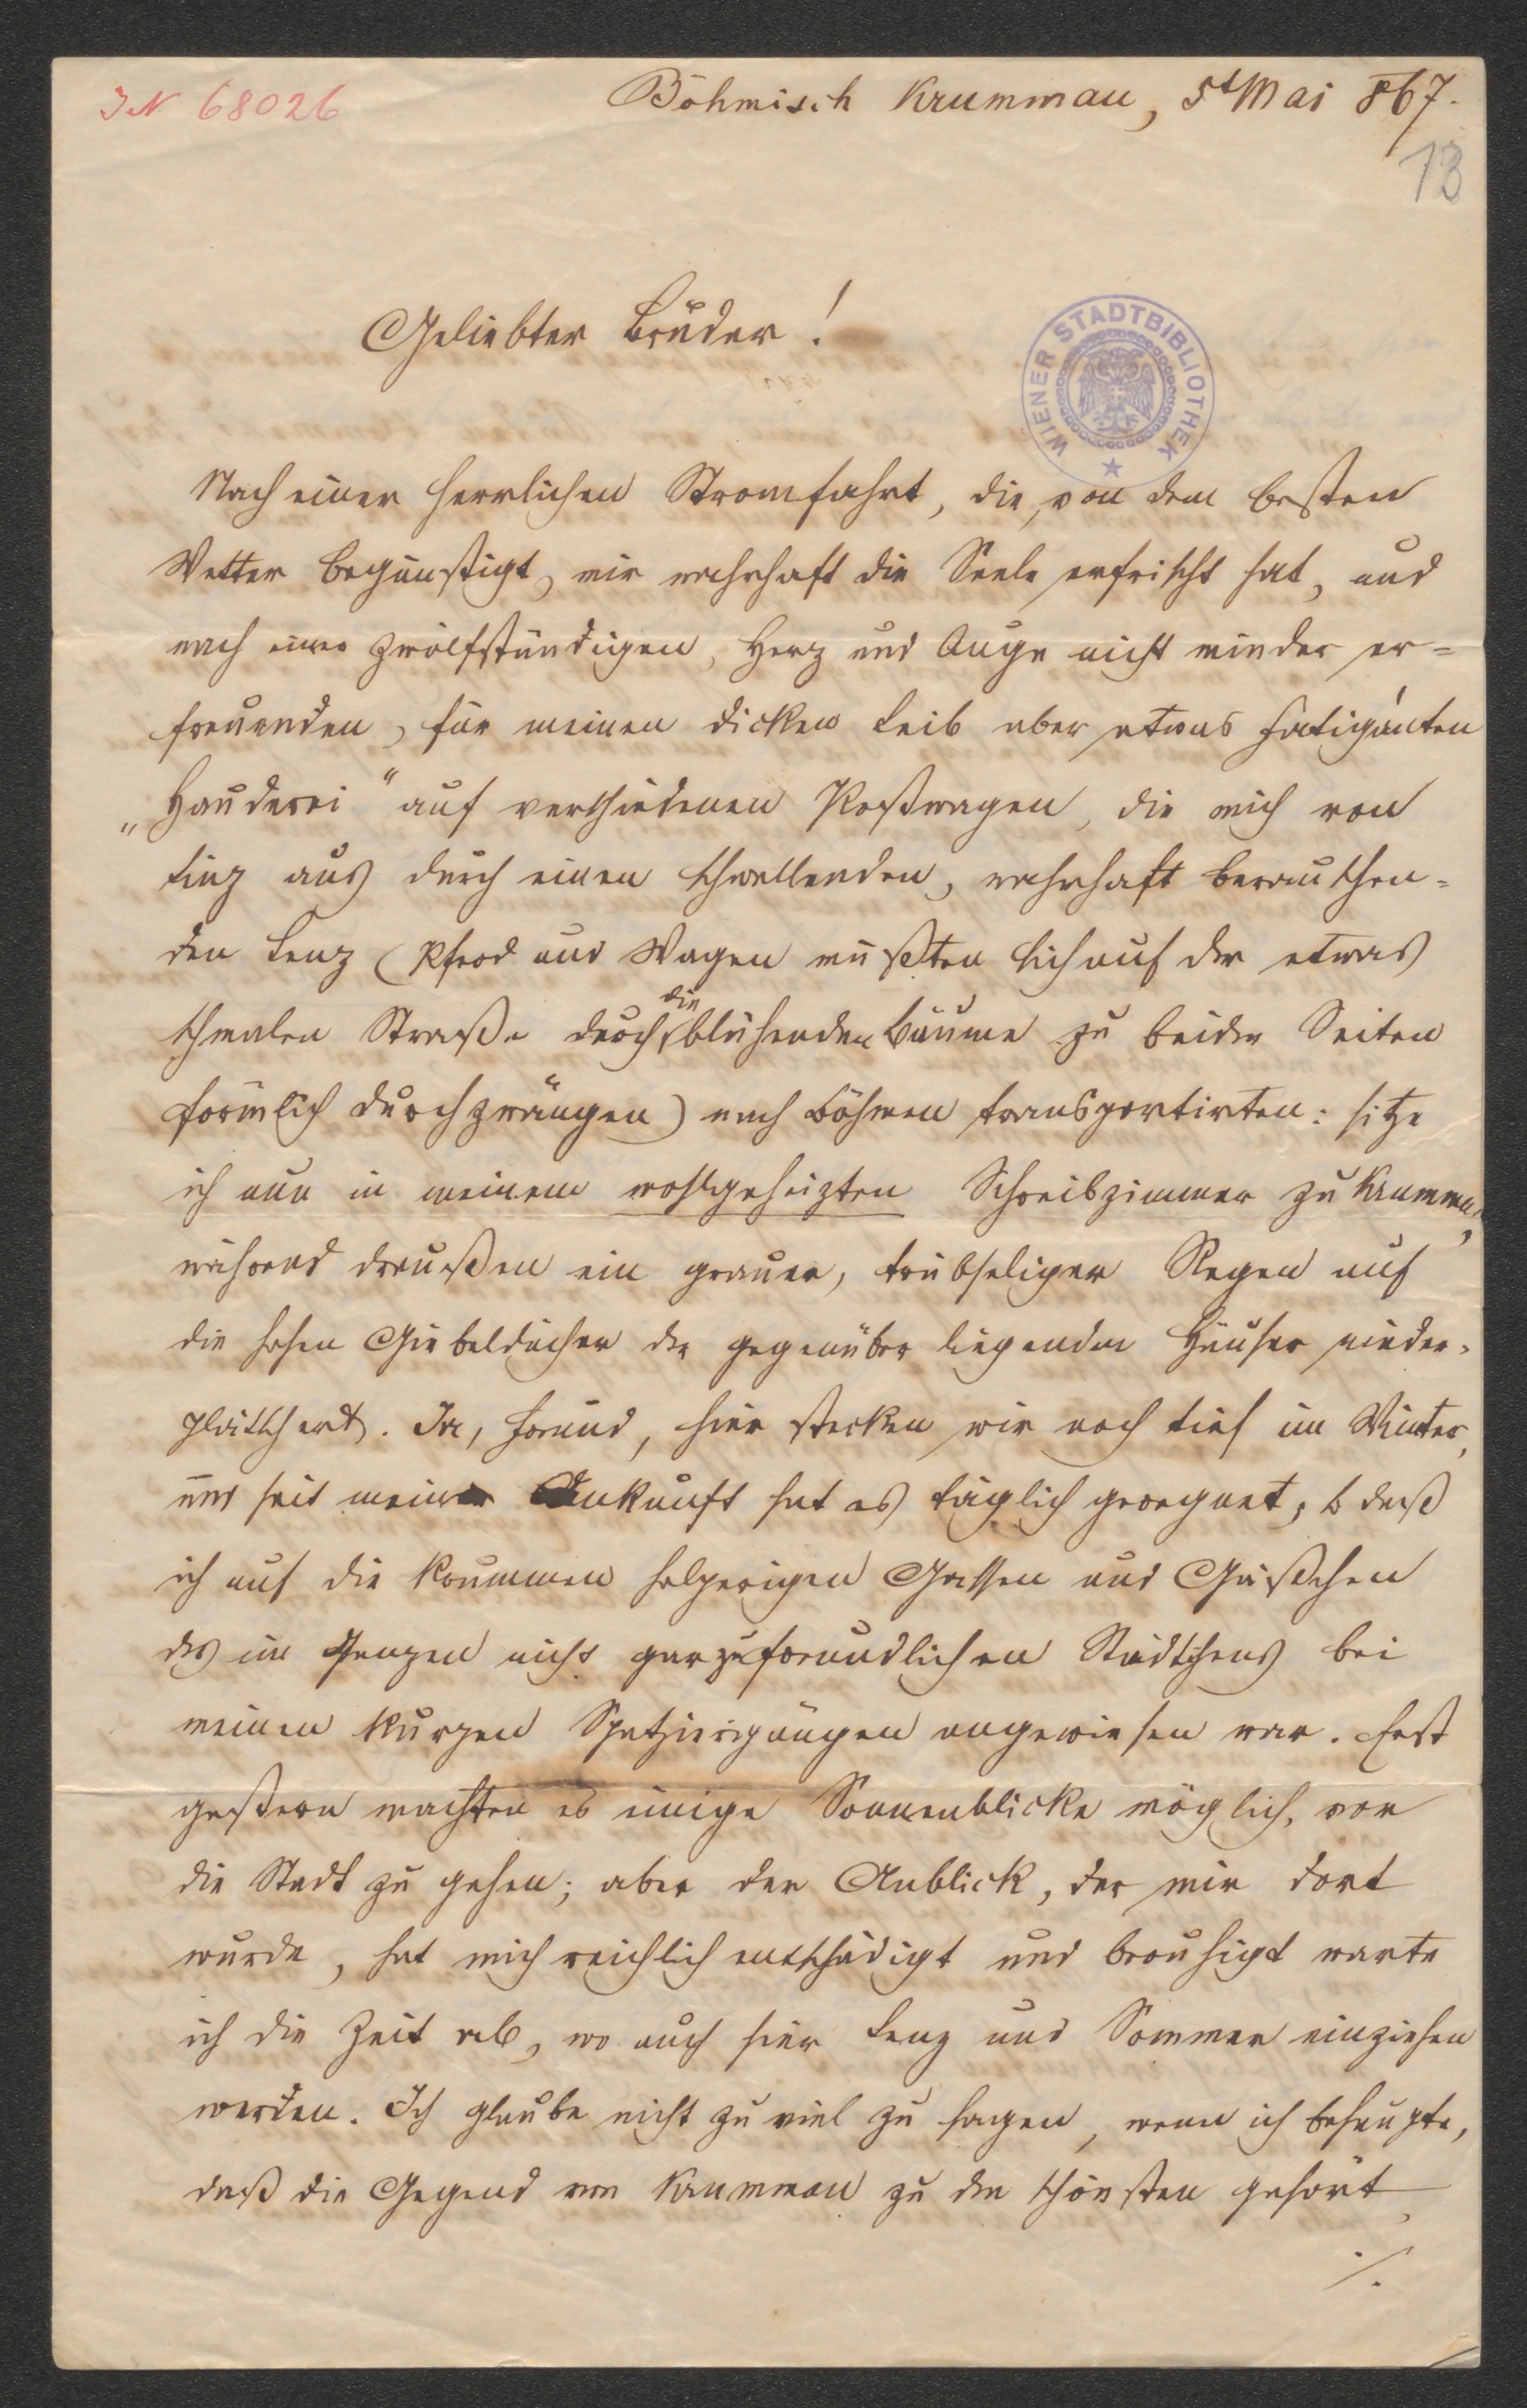 JN 68026
Böhmisch Krummau, 5t Mai 867.
13
Geliebter Bruder!
WIENER STADTBIBLIOTHEK
Nach einer herrlichen Stromfahrt, die, von dem besten
Wetter begünstigt, mir wahrhaft die Seele erfrischt hat, und
nach einer zwölfstündigen, Herz und Auge nicht minder er=
freuenden, für meinen dicken Leib aber etwas fatiganten
„Hauderei“ auf verschiedenen Postwagen, die mich von
Linz aus durch einen schwellenden, wahrhaft berauschen=
den Lenz (Pferd und Wagen mußten sich auf der etwas
schmalen Straße durch die blühenden Bäume zu beiden Seiten
förmlich durchzwängen) nach Böhmen transportirten: sitze
ich nun in meinem wohlgeheizten Schreibzimmer zu Krummau,
während draußen ein grauer, trübseliger Regen auf
die hohen Giebeldächer der gegenüber liegenden Häuser nieder=
plätschert. Ja, Freund, hier stecken wir noch tief im Winter,
und seit meiner Ankunft hat es täglich geregnet, so daß
ich auf die krummen holperigen Gassen und Gäßchen
des im Ganzen nicht gar zu freundlichen Städtchens bei
meinen kurzen Spatziergängen angewiesen war. Erst
gestern machten es einige Sonnenblicke möglich, vor
die Stadt zu gehen; aber der Anblick, der mir dort
wurde, hat mich reichlich entschädigt und beruhigt warte
ich die Zeit ab, wo auch hier Lenz und Sommer einziehen
werden. Ich glaube nicht zu viel zu sagen, wenn ich behaupte,
daß die Gegend von Krummau zu den schönsten gehört,
./.